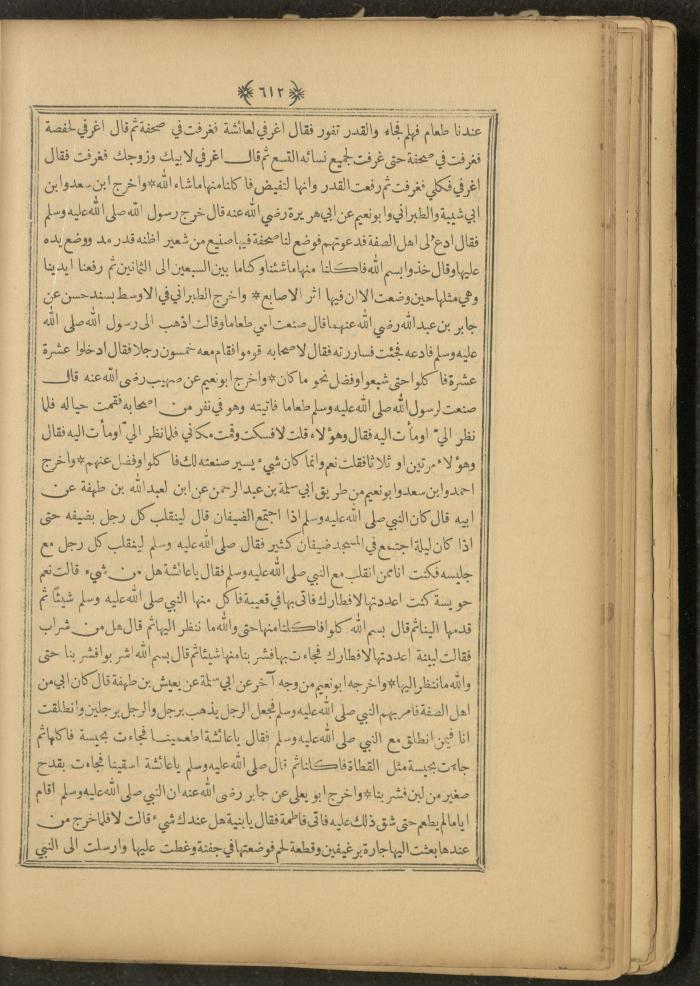 ٦١٢
عندنا طعام فهلم فجاء والقدر تفور فقال اغرفي لعائشة فغرفت في صحفة ثم قال اغرفي لحفصة
فغرفت في صحفة حتى غرفت لجميع نسائه التسع ثم قال اغرفي لابيك وزوجك فغرفت فقال
اغرفي فكلي فغرفت ثم رفعت القدر وانها لتفيض فاكلنا منها ماشاء الله * واخرج ابن سعد وابن
ابي شيبة والطبراني وابو نعيم عن ابي هريرة رضي الله عنه قال خرج رسول الله صلى الله عليه وسلم
فقال ادع لى اهل الصفة فدعوتهم فوضع لنا صحفة فيها صنيع من شعير اظنه قدر مد ووضع يده
عليها وقال خذوا بسم الله فاكلنا منها ماشئنا وكنا ما بين السبعين الى الثمانين ثم رفعنا ايدينا
وهي مثلها حين وضعت الا ان فيها اثر الاصابع * واخرج الطبراني في الاوسط بسند حسن عن
جابر بن عبد الله رضي الله عنهما قال صنعت امي طعاما وقالت اذهب الى رسول الله صلى الله
عليه وسلم فادعه فجئت فساررته فقال لاصحابه قوموا فقام معه خمسون رجلا فقال ادخلوا عشرة
عشرة فاكلوا حتى شبعوا وفضل نحو ما كان * واخرج ابو نعيم عن صهيب رضى الله عنه قال
صنعت لرسول الله صلى الله عليه وسلم طعاما فاتيته وهو في نفر من اصحابه فقمت حياله فلما
نظر اليّ اومأت اليه فقال وهؤلاء قلت لا فسكت وقمت مكاني فلما نظر اليّ اومأت اليه فقال
وهؤلاء مرتين او ثلاثا فقلت نعم وانما كان شيء يسير صنعته لك فاكلوا وفضل عنهم * واخرج
احمد وابن سعد وابو نعيم من طريق ابي سلمة بن عبد الرحمن عن ابن لعبد الله بن طهفة عن
ابيه قال كان النبي صلى الله عليه وسلم اذا اجتمع الضيفان قال لينقلب كل رجل بضيفه حتى
اذا كان ليلة اجتمع في المسجد ضيفان كثير فقال صلى الله عليه وسلم لينقلب كل رجل مع
جليسه فكنت انا ممن انقلب مع النبي صلى الله عليه وسلم فقال يا عائشة هل من شيء قالت نعم
حويسة كنت اعددتها لافطارك فاتى بها في قعيبة فاكل منها النبي صلى الله عليه وسلم شيئا ثم
قدمها الينا ثم قال بسم الله كلوا فاكلنا منها حتى والله ما ننظر اليها ثم قال هل من شراب
فقالت لبينة اعددتها لافطارك فجاءت بها فشربنا منها شيئا ثم قال بسم الله اشربوا فشربنا حتى
والله ما ننظر اليها * واخرجه ابو نعيم من وجه آخر عن ابي سلمة عن يعيش بن طهفة قال كان ابي من
اهل الصفة فامر بهم النبي صلى الله عليه وسلم فجعل الرجل يذهب برجل والرجل برجلين وانطلقت
انا فيمن انطلق مع النبي صلى الله عليه وسلم فقال يا عائشة اطعمينا فجاءت بجيسة فاكلها ثم
جاءت بحيسة مثل القطاة فاكلنا ثم قال صلى الله عليه وسلم يا عائشة اسقينا فجاءت بقدح
صغير من لبن فشربنا * واخرج ابو يعلى عن جابر رضى الله عنه ان النبي صلى الله عليه وسلم اقام
اياما لم يطعم حتى شق ذلك عليه فاتى فاطمة فقال يا بنية هل عندك شيء قالت لا فلما خرج من
عندها بعثت اليها جارة برغيفين وقطعة لحم فوضعتها في جفنة وغطت عليها وارسلت الى النبي